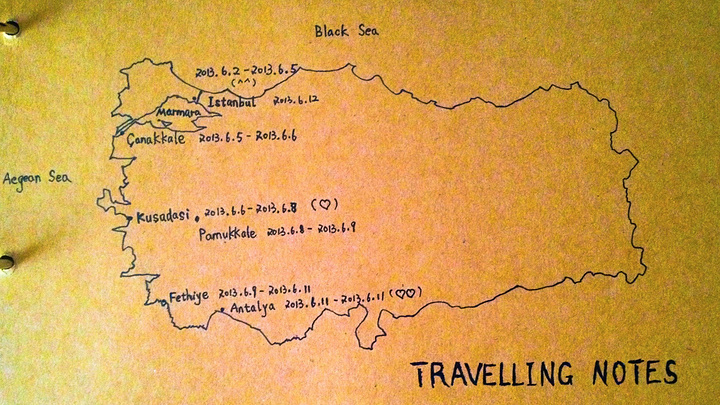 Black Sea
2013.6.2 - 2013.6.5
(^^)
Istanbul 2013.6.12
Marmara
Çanakkale 2013.6.5 - 2013.6.6
Aegean Sea
Kuşadasi 2013.6.6 - 2013.6.8 (♡)
Pamukkale 2013.6.8 - 2013.6.9
Fethiye 2013.6.9 - 2013.6.11
Antalya 2013.6.11 - 2013.6.11 (♡♡)
TRAVELLING NOTES